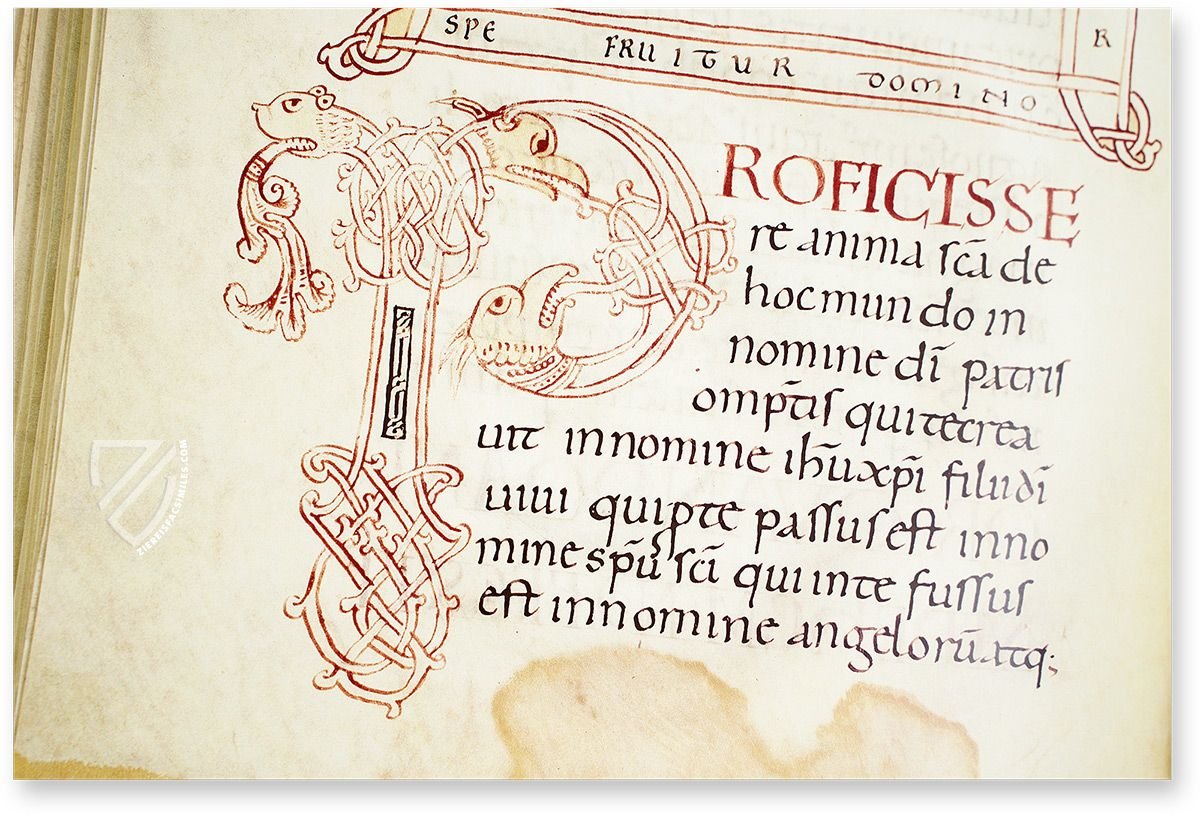 SPE FRUITUR DOMINO R
PROFICISSE
re anima sc̄a de
hoc mundo in
nomine dī patris
omp̄tis qui te crea
uit in nomine ih̄u xp̄i filii dī
uiui qui pte passus est in no
mine sp̄u sc̄i qui in te fussus
est in nomine angelorū atq;
ZIEREISFACSIMILES.COM